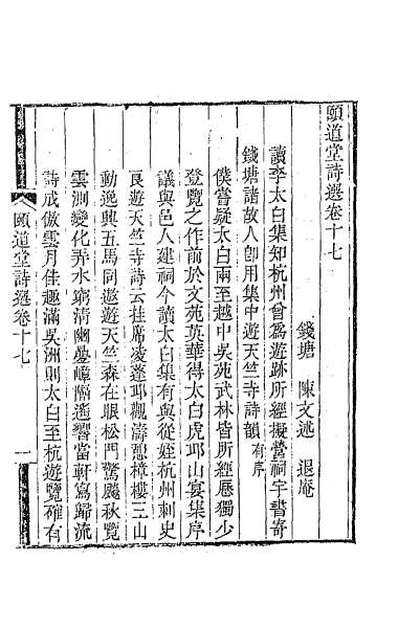 頤道堂詩選卷十七
錢塘　陳文述　退庵
讀李太白集知杭州曾爲遊跡所經擬營祠宇書寄
錢塘諸故人卽用集中遊天竺寺詩韻有序
僕嘗疑太白兩至越中吳苑武林皆所經歷獨少
登覽之作前於文苑英華得太白虎邱山宴集序
議與邑人建祠今讀太白集有與從姪杭州刺史
良遊天竺寺詩云挂席凌蓬邱觀濤憩樟樓三山
動逸興五馬同遨遊天竺森在眼松門驚颷秋覽
雲測變化弄水窮清幽疊嶂隔遙響當軒寫歸流
詩成傲雲月佳趣滿吳洲則太白至杭遊覽確有
頤道堂詩選卷十七
一